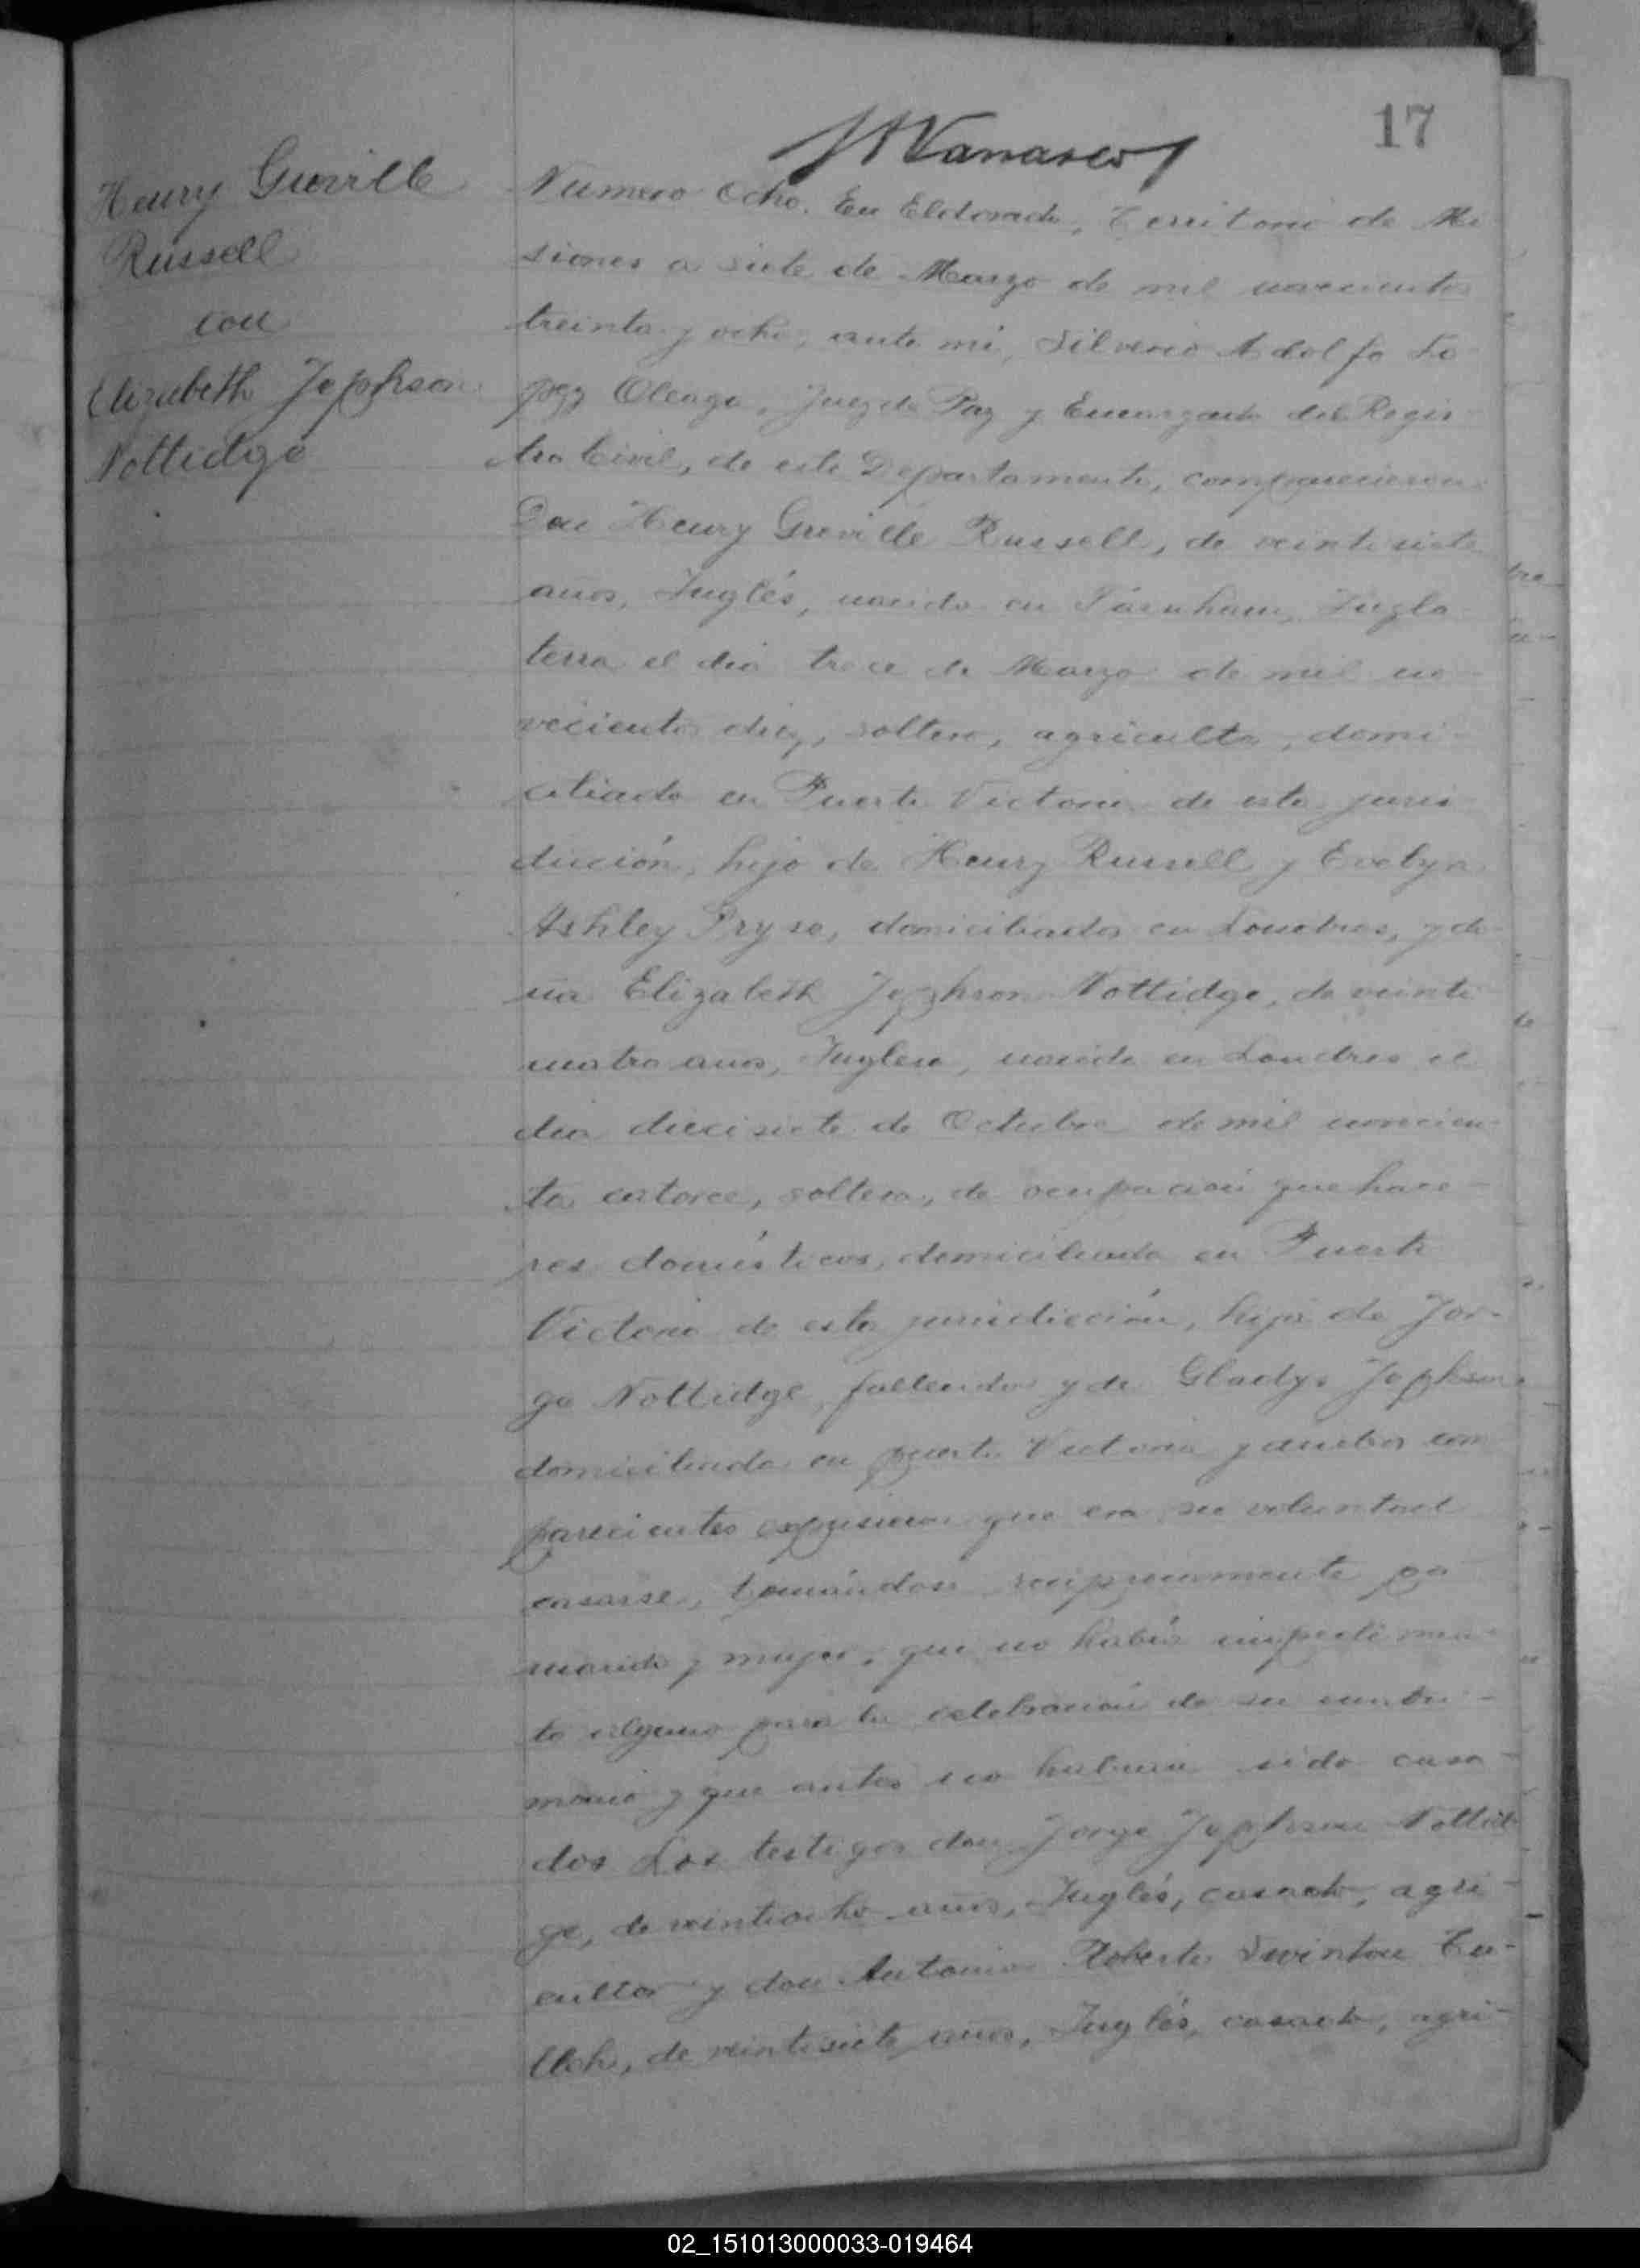 17
Henry Greville
Russell
con
Elizabeth Jephson
Nottidge
Número Ocho. En Eldorado, Territorio de Mi-
siones a siete de Marzo de mil novecientos
treinta y ocho, ante mi, Silverio Adolfo Lo-
pez Oleaga, Juez de Paz y Encargado del Regis-
tro Civil, de este Departamento, comparecieron
Don Henry Greville Russell, de veintisiete
años, Inglés, nacido en Farnham, Ingla-
terra el dia trece de Marzo de mil no-
vecientos diez, soltero, agricultor, domi-
ciliado en Puerto Victoria de esta juris-
dicción, hijo de Henry Russell y Evelyn
Ashley Pryse, domiciliados en Londres, y do-
ña Elizabeth Jephson Nottidge, de veinti-
cuatro años, Inglesa, nacida en Londres el
dia diecisiete de Octubre de mil novecien-
tos catorce, soltera, de ocupación quehace-
res domésticos, domiciliada en Puerto
Victoria de esta jurisdicción, hija de Jor-
ge Nottidge, fallecido y de Gladys Jephson
domiciliada en puerto Victoria y ambos com
parecientes expusieron que era su voluntad
casarse, tomándose reciprocamente po
marido y mujer, que no había impedimen-
to alguno para la celebración de su matri-
monio y que antes no habian sido casa-
dos Los testigos don Jorge Jephson Nottid
ge, de veintiocho años, Inglés, casado, agri-
cultor y don Antonio Roberto Swinton Tu-
lloh, de veintisiete años, Inglés, casado, agri-
02_151013000033-019464